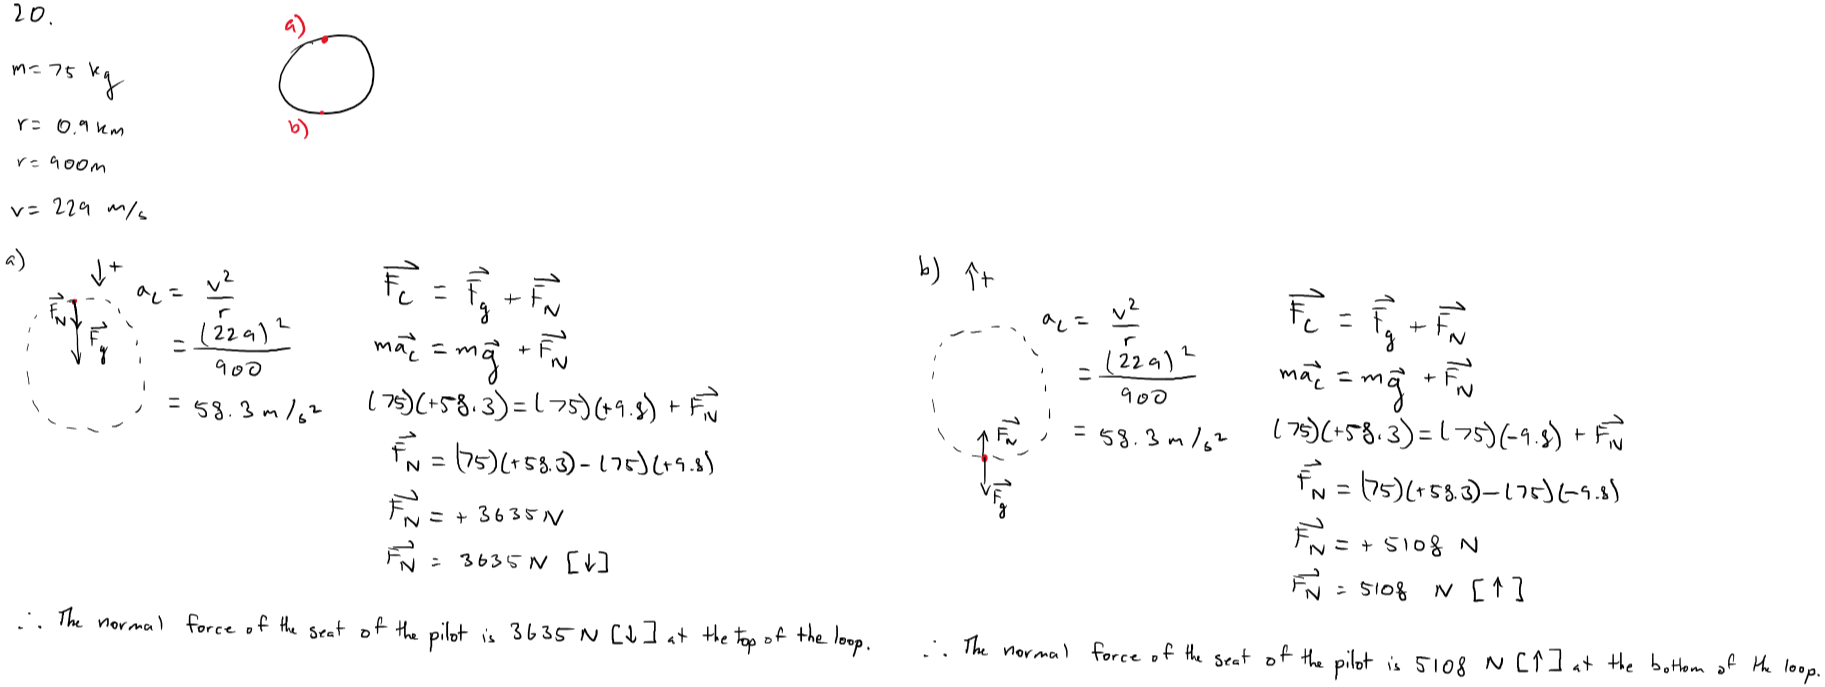 20.
a)
b)
m = 75 kg
r = 0.9 km
r = 900m
v = 229 m/s
a)
↓+
F⃗_N
F⃗_g
a_c = v²/r
= (229)²/900
= 58.3 m/s²
F⃗_c = F⃗_g + F⃗_N
ma⃗_c = mg⃗ + F⃗_N
(75)(+58.3) = (75)(+9.8) + F⃗_N
F⃗_N = (75)(+58.3) - (75)(+9.8)
F⃗_N = + 3635 N
F⃗_N = 3635 N [↓]
∴ The normal force of the seat of the pilot is 3635 N [↓] at the top of the loop.
b) ↑+
F⃗_N
F⃗_g
a_c = v²/r
= (229)²/900
= 58.3 m/s²
F⃗_c = F⃗_g + F⃗_N
ma⃗_c = mg⃗ + F⃗_N
(75)(+58.3) = (75)(-9.8) + F⃗_N
F⃗_N = (75)(+58.3) - (75)(-9.8)
F⃗_N = + 5108 N
F⃗_N = 5108 N [↑]
∴ The normal force of the seat of the pilot is 5108 N [↑] at the bottom of the loop.